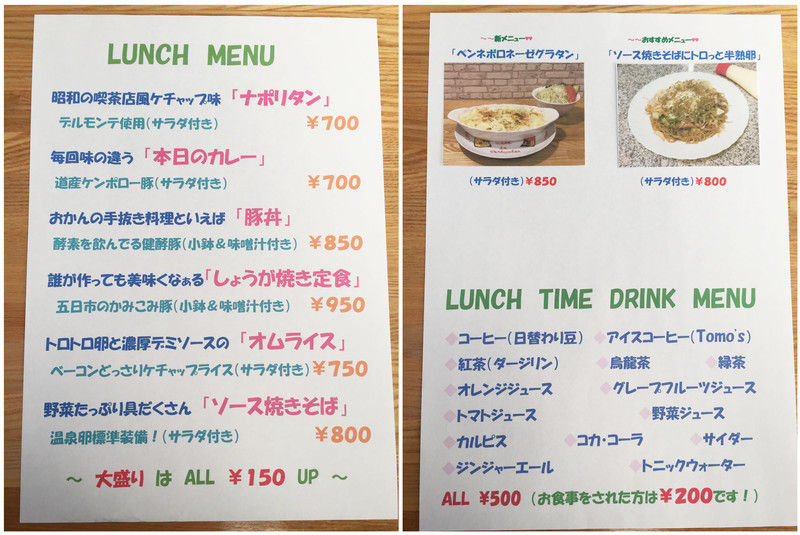 LUNCH MENU
昭和の喫茶店風ケチャップ味「ナポリタン」
デルモンテ使用(サラダ付き) ¥700
毎回味の違う「本日のカレー」
道産ケンボロー豚(サラダ付き) ¥700
おかんの手抜き料理といえば「豚丼」
酵素を飲んでる健酵豚(小鉢&味噌汁付き) ¥850
誰が作っても美味くなぁる「しょうが焼き定食」
五日市のかみこみ豚(小鉢&味噌汁付き) ¥950
トロトロ卵と濃厚デミソースの「オムライス」
ベーコンどっさりケチャップライス(サラダ付き) ¥750
野菜たっぷり具だくさん「ソース焼きそば」
温泉卵標準装備!(サラダ付き) ¥800
~ 大盛り は ALL ¥150 UP ~
~~新メニュー
「ペンネボロネーゼグラタン」
(サラダ付き)¥850
~~おすすめメニュー
「ソース焼きそばにトロっと半熟卵」
(サラダ付き)¥800
LUNCH TIME DRINK MENU
◆コーヒー(日替わり豆) ◆アイスコーヒー(Tomo's)
◆紅茶(ダージリン) ◆烏龍茶 ◆緑茶
◆オレンジジュース ◆グレープフルーツジュース
◆トマトジュース ◆野菜ジュース
◆カルピス ◆コカ・コーラ ◆サイダー
◆ジンジャーエール ◆トニックウォーター
ALL ¥500 (お食事をされた方は¥200です!)